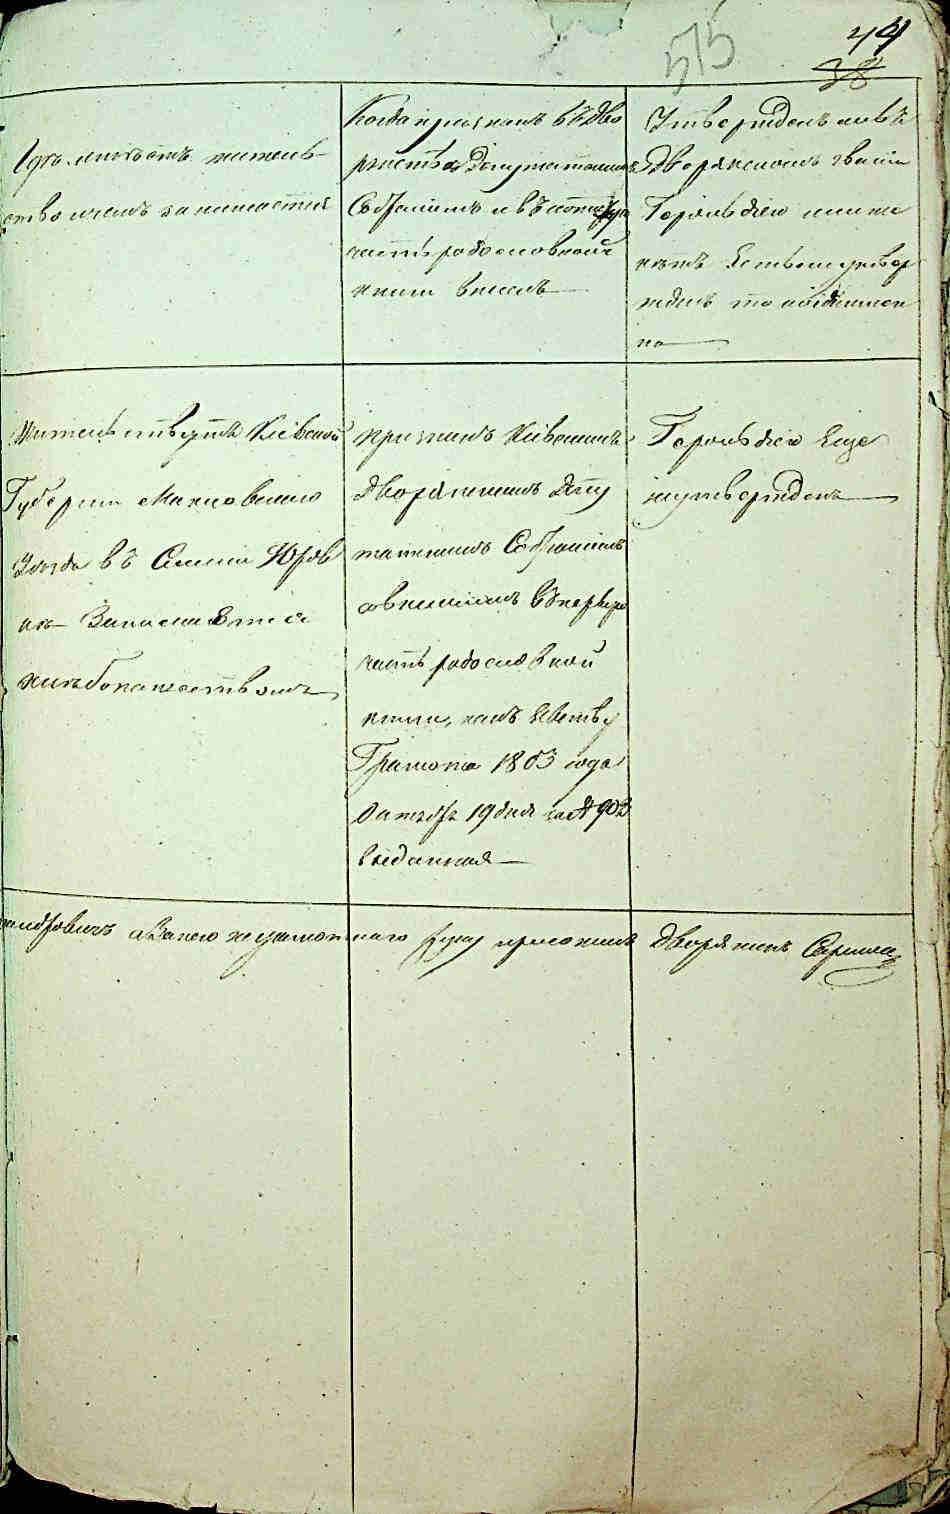 515
44
38
Гдѣ имѣетъ житель-
ство и чемъ занимается
Когда признанъ въ Дво
рянствѣ Депутатскимъ
Собраніемъ и въ которую
часть родословной
книги внесенъ
Утвержденъ ли въ
Дворянскомъ званіи
Герольдіею или
нѣтъ Естьли утвер
жденъ то
но
Жительствуетъ Кіевской
Губерніи Махновскаго
Уѣзда въ Селеніи Юров
кѣ Занимается
хлѣбопашествомъ
признанъ Кіевскимъ
Дворянскимъ Депу
татскимъ Собраніемъ
со внесеніемъ въ первую
часть родословной
книги, какъ
Грамота 1803 года
Октября 19 дня за № 902
выданная
Герольдіею Еще
неутвержденъ
руку приложилъ Дворянинъ